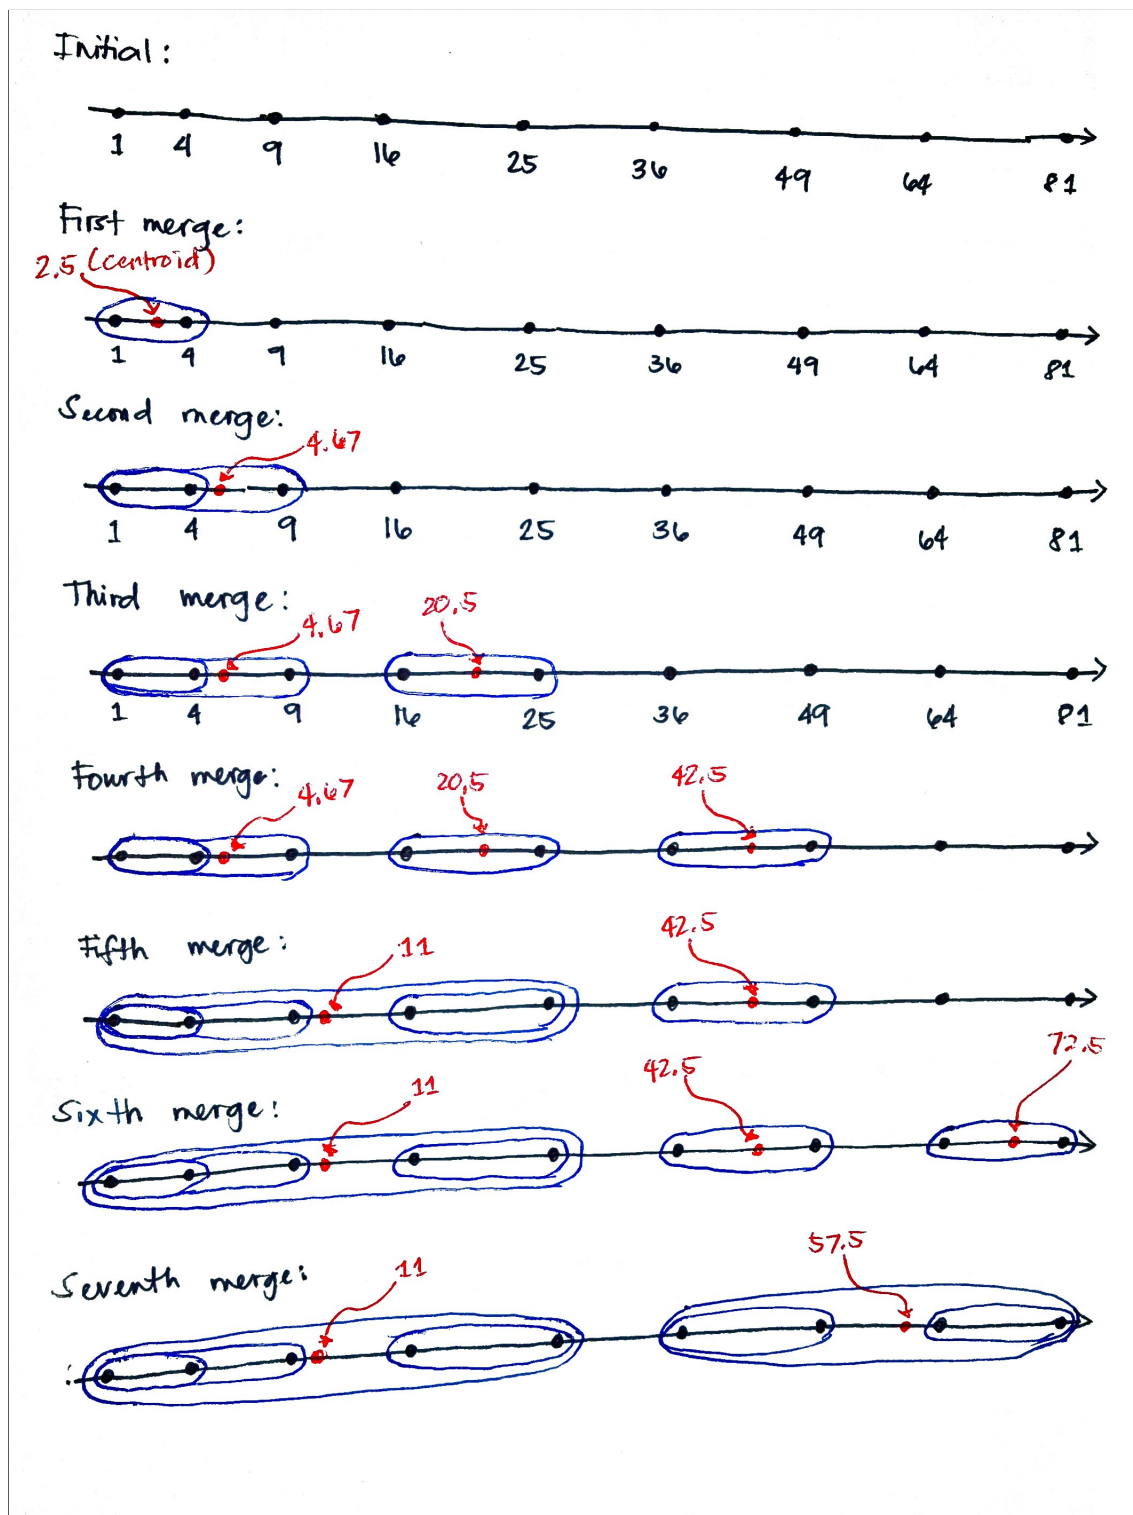 Initial:
1 4 9 16 25 36 49 64 81
First merge:
2.5 (centroid)
1 4 9 16 25 36 49 64 81
Second merge:
4.67
1 4 9 16 25 36 49 64 81
Third merge:
4.67 20.5
1 4 9 16 25 36 49 64 81
Fourth merge:
4.67 20.5 42.5
Fifth merge:
11 42.5
Sixth merge:
11 42.5 72.5
Seventh merge:
11 57.5